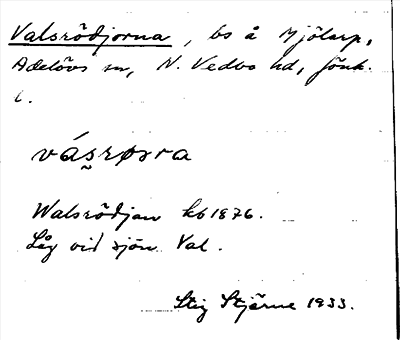 Valsrödjorna, bs å Mjölarp,
Adelövs sn, N. Vedbo hd, Jönk.
l.
vás̰røsra
Walsrödjan kb 1876.
Låg vid sjön Val.
Stig Stjärne 1933.